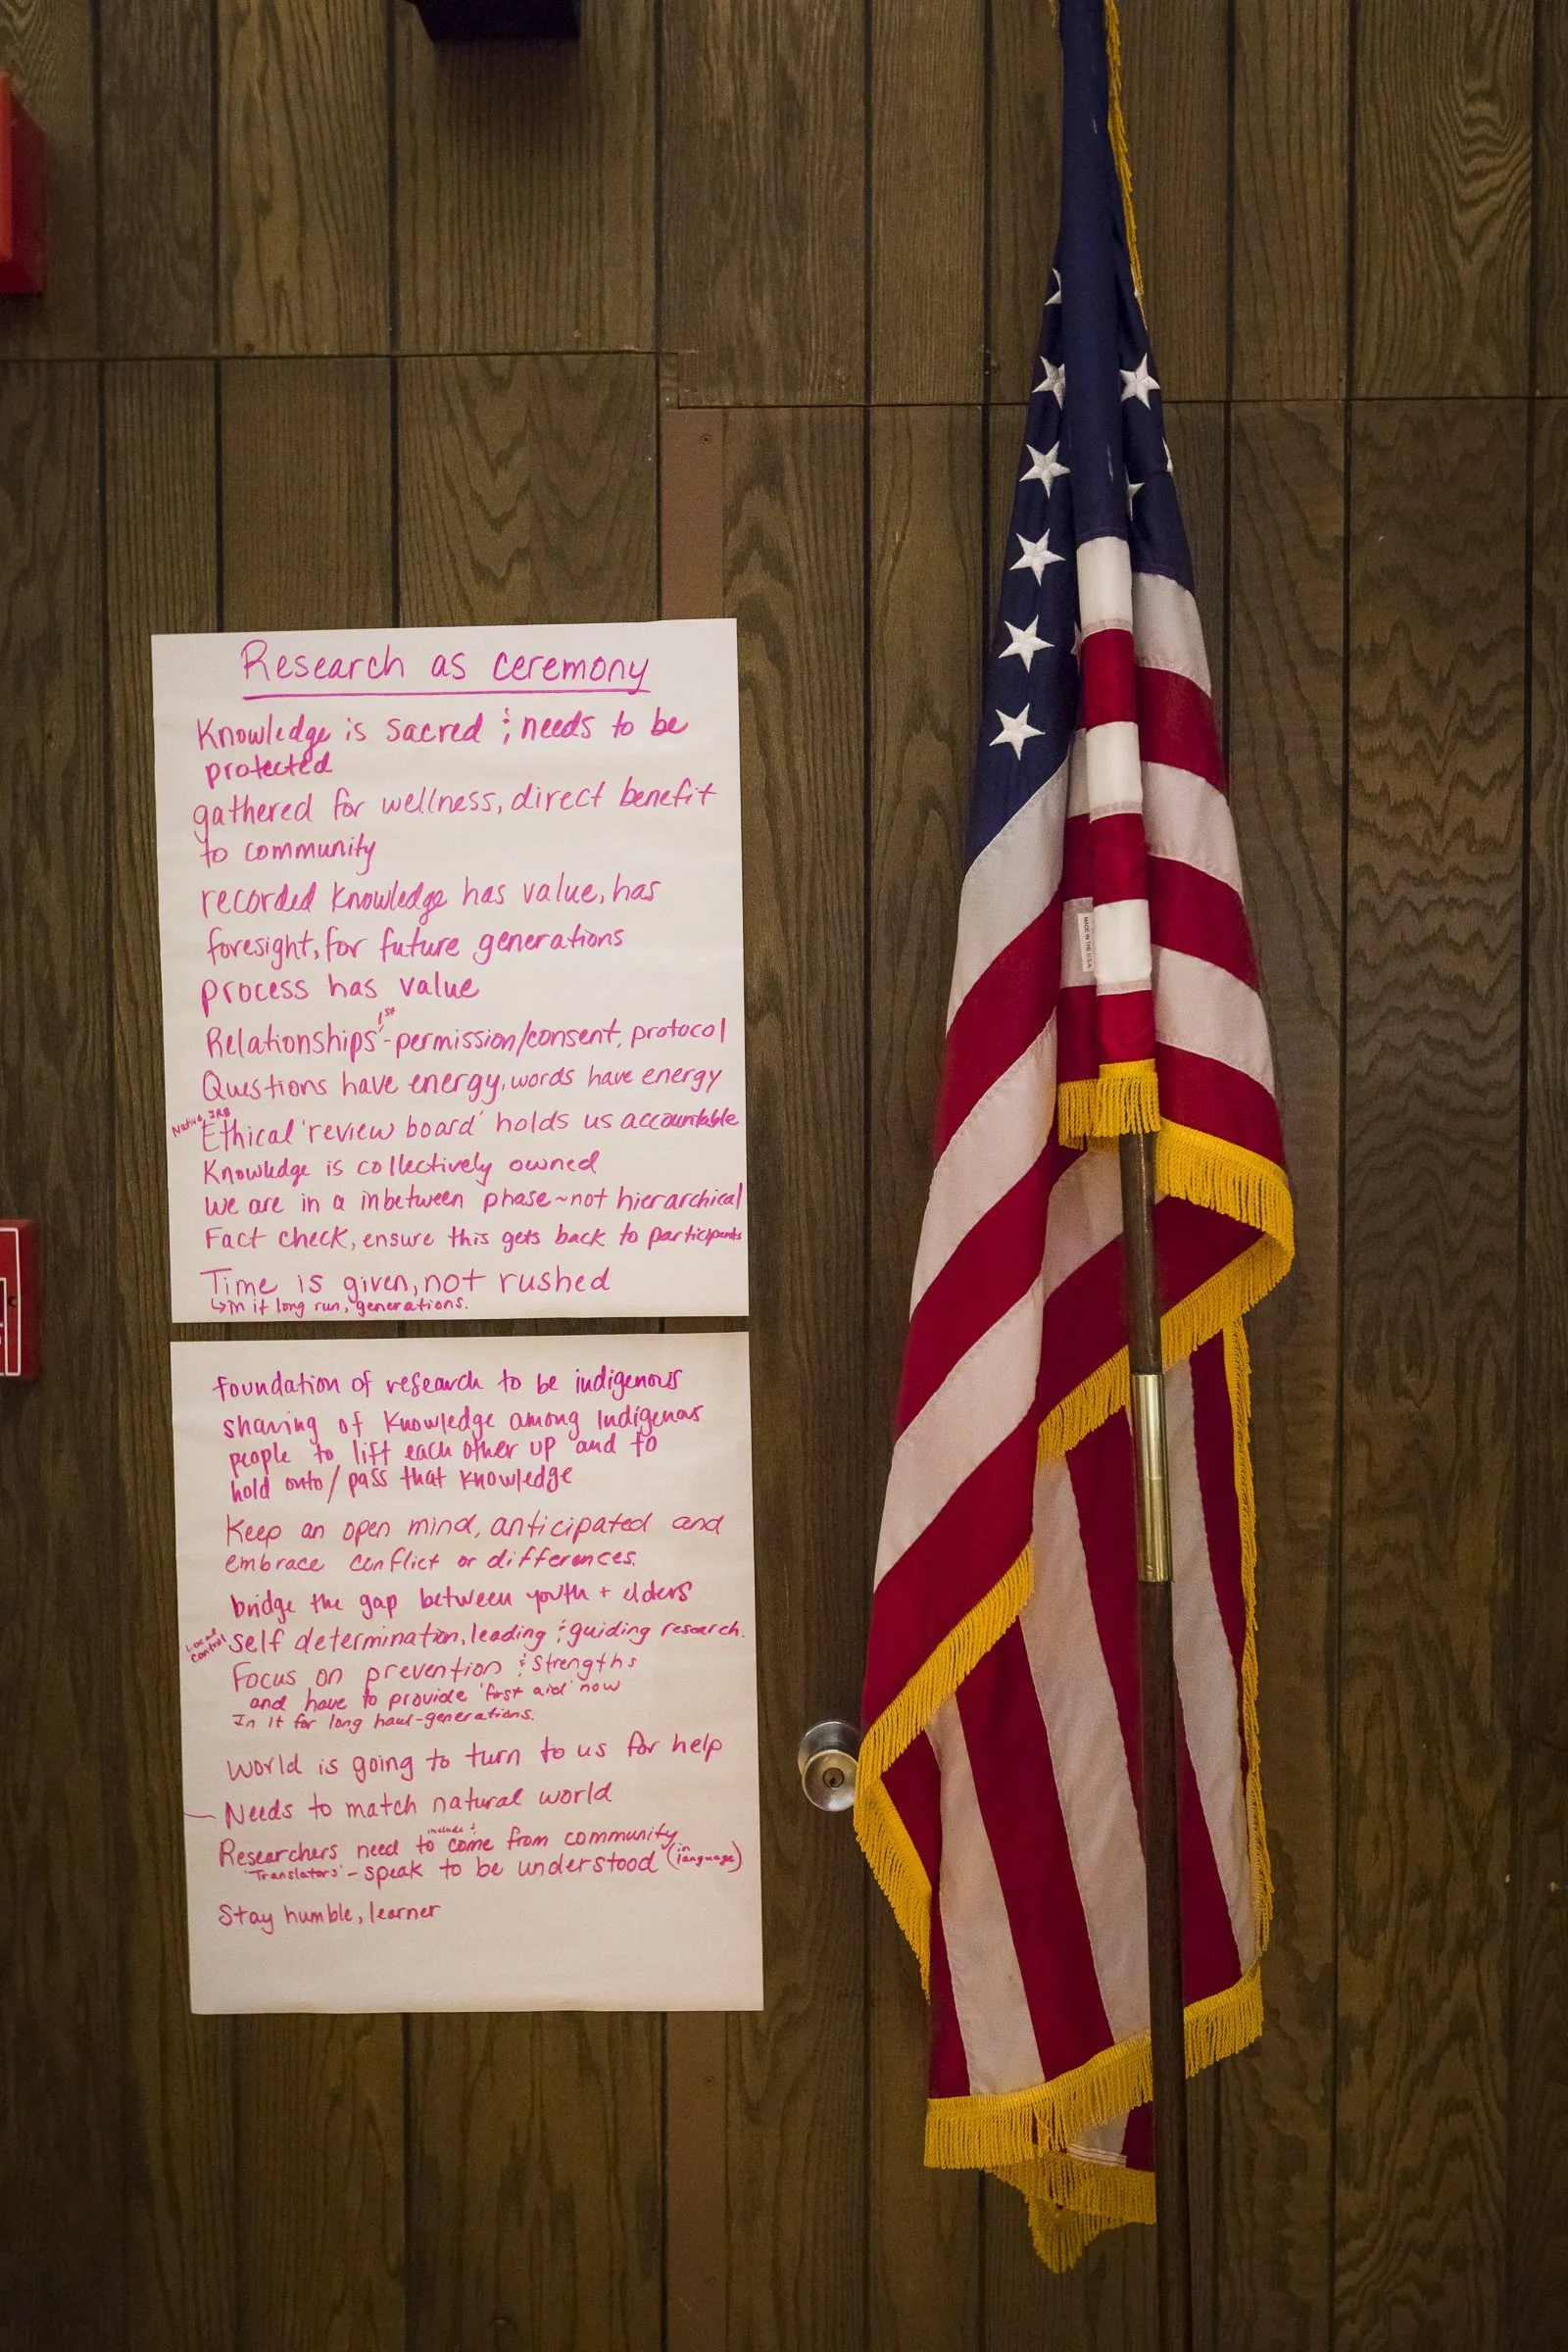 Research as ceremony
Knowledge is sacred & needs to be
protected
gathered for wellness, direct benefit
to community
recorded knowledge has value, has
foresight, for future generations
process has value
1st
Relationships - permission/consent, protocol
Questions have energy, words have energy
Native IRB
Ethical 'review board' holds us accountable
Knowledge is collectively owned
We are in a inbetween phase ~ not hierarchical
Fact check, ensure this gets back to participants
Time is given, not rushed
↳ in it long run, generations.
foundation of research to be indigenous
sharing of knowledge among Indigenous
people to lift each other up and to
hold onto / pass that knowledge
Keep an open mind, anticipated and
embrace conflict or differences.
bridge the gap between youth + elders
Local
control
self determination, leading & guiding research.
Focus on prevention & strengths
and have to provide 'first aid' now
In it for long haul - generations.
World is going to turn to us for help
Needs to match natural world
include &
Researchers need to come from community
'Translators' - speak to be understood (in language)
Stay humble, learner
MADE IN THE U.S.A.